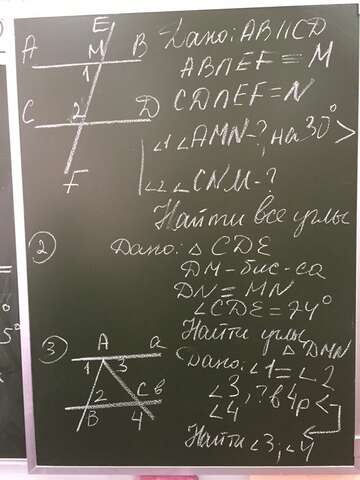 E
A M B
1
C 2 D
F
Дано: AB||CD
AB∩EF = M
CD∩EF = N
∠1 ∠AMN-?, на 30° >
∠2 ∠CNM-?
Найти все углы
② Дано: △ CDE
DM-бис-са
DN = MN
∠CDE = 74°
Найти углы
△ DMN
③ A a
1 3
2 C в
B 4
Дано: ∠1 = ∠2
∠3, ? в 4р <
∠4
Найти ∠3, ∠4
5°